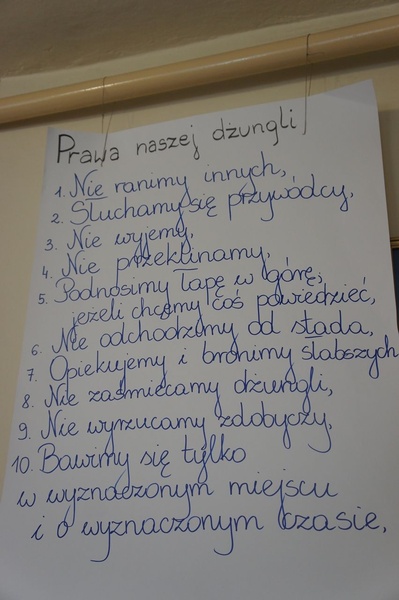 Prawa naszej dżungli
1. Nie ranimy innych,
2. Słuchamy się przywódcy,
3. Nie wyjemy,
4. Nie przeklinamy,
5. Podnosimy łapę w górę,
jeżeli chcemy coś powiedzieć,
6. Nie odchodzimy od stada,
7. Opiekujemy i bronimy słabszych
8. Nie zaśmiecamy dżungli,
9. Nie wyrzucamy zdobyczy,
10. Bawimy się tylko
w wyznaczonym miejscu
i o wyznaczonym czasie,